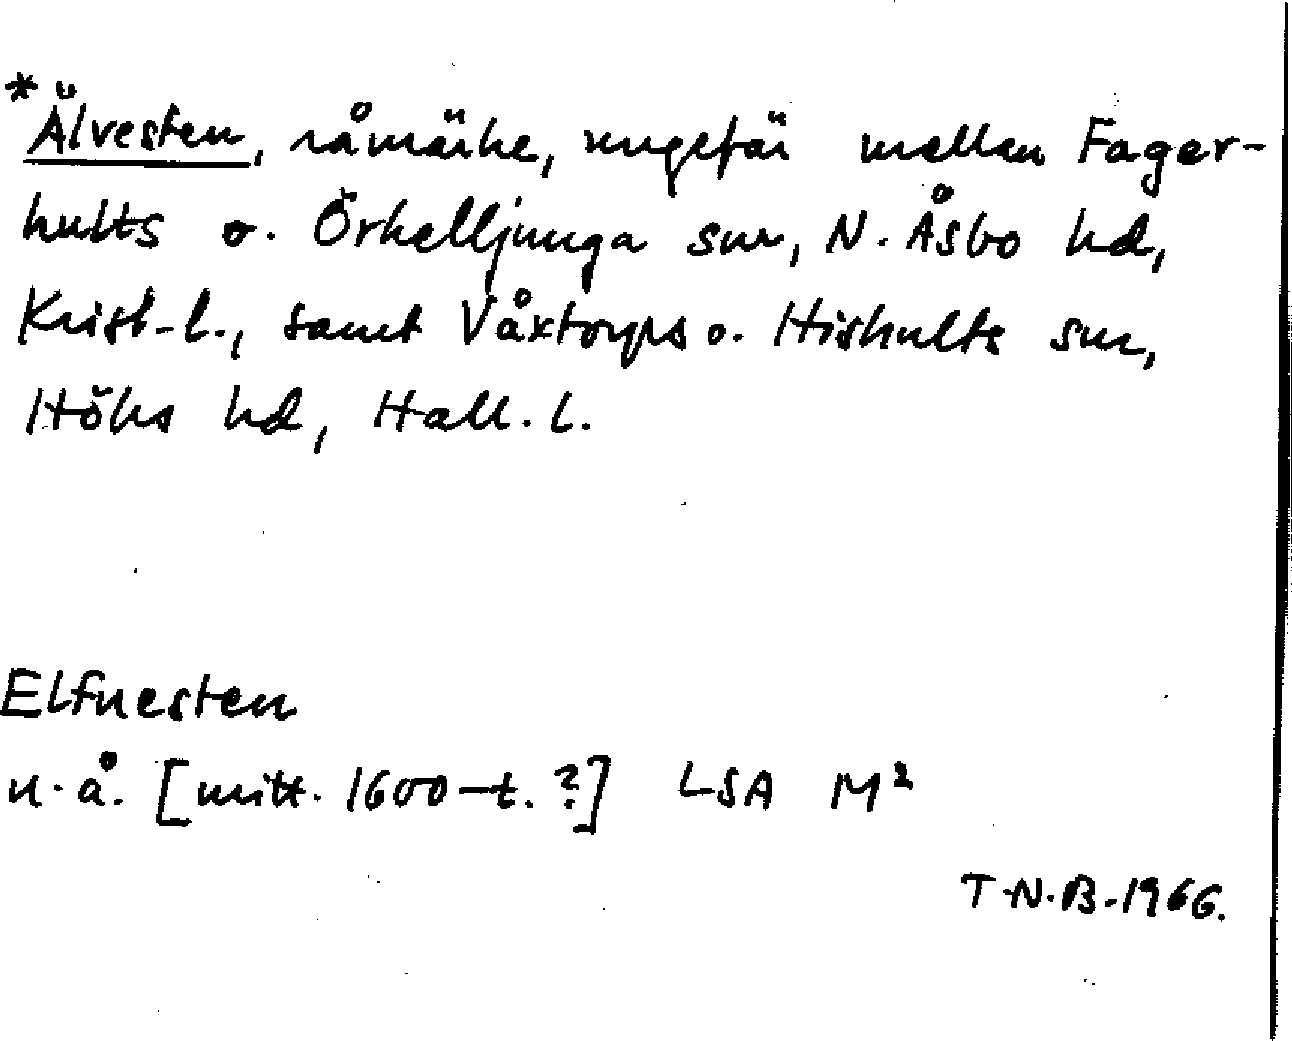 *Älvesten, råmärke, ungefär mellan Fager-
hults o. Örkelljunga snr, N. Åsbo hd,
Krist-l., samt Våxtorps o. Hishults snr,
Höks hd, Hall. l.
Elfuesten
u.å. [mitt. 1600-t.?] LSA M²
T.N.B. 1966.